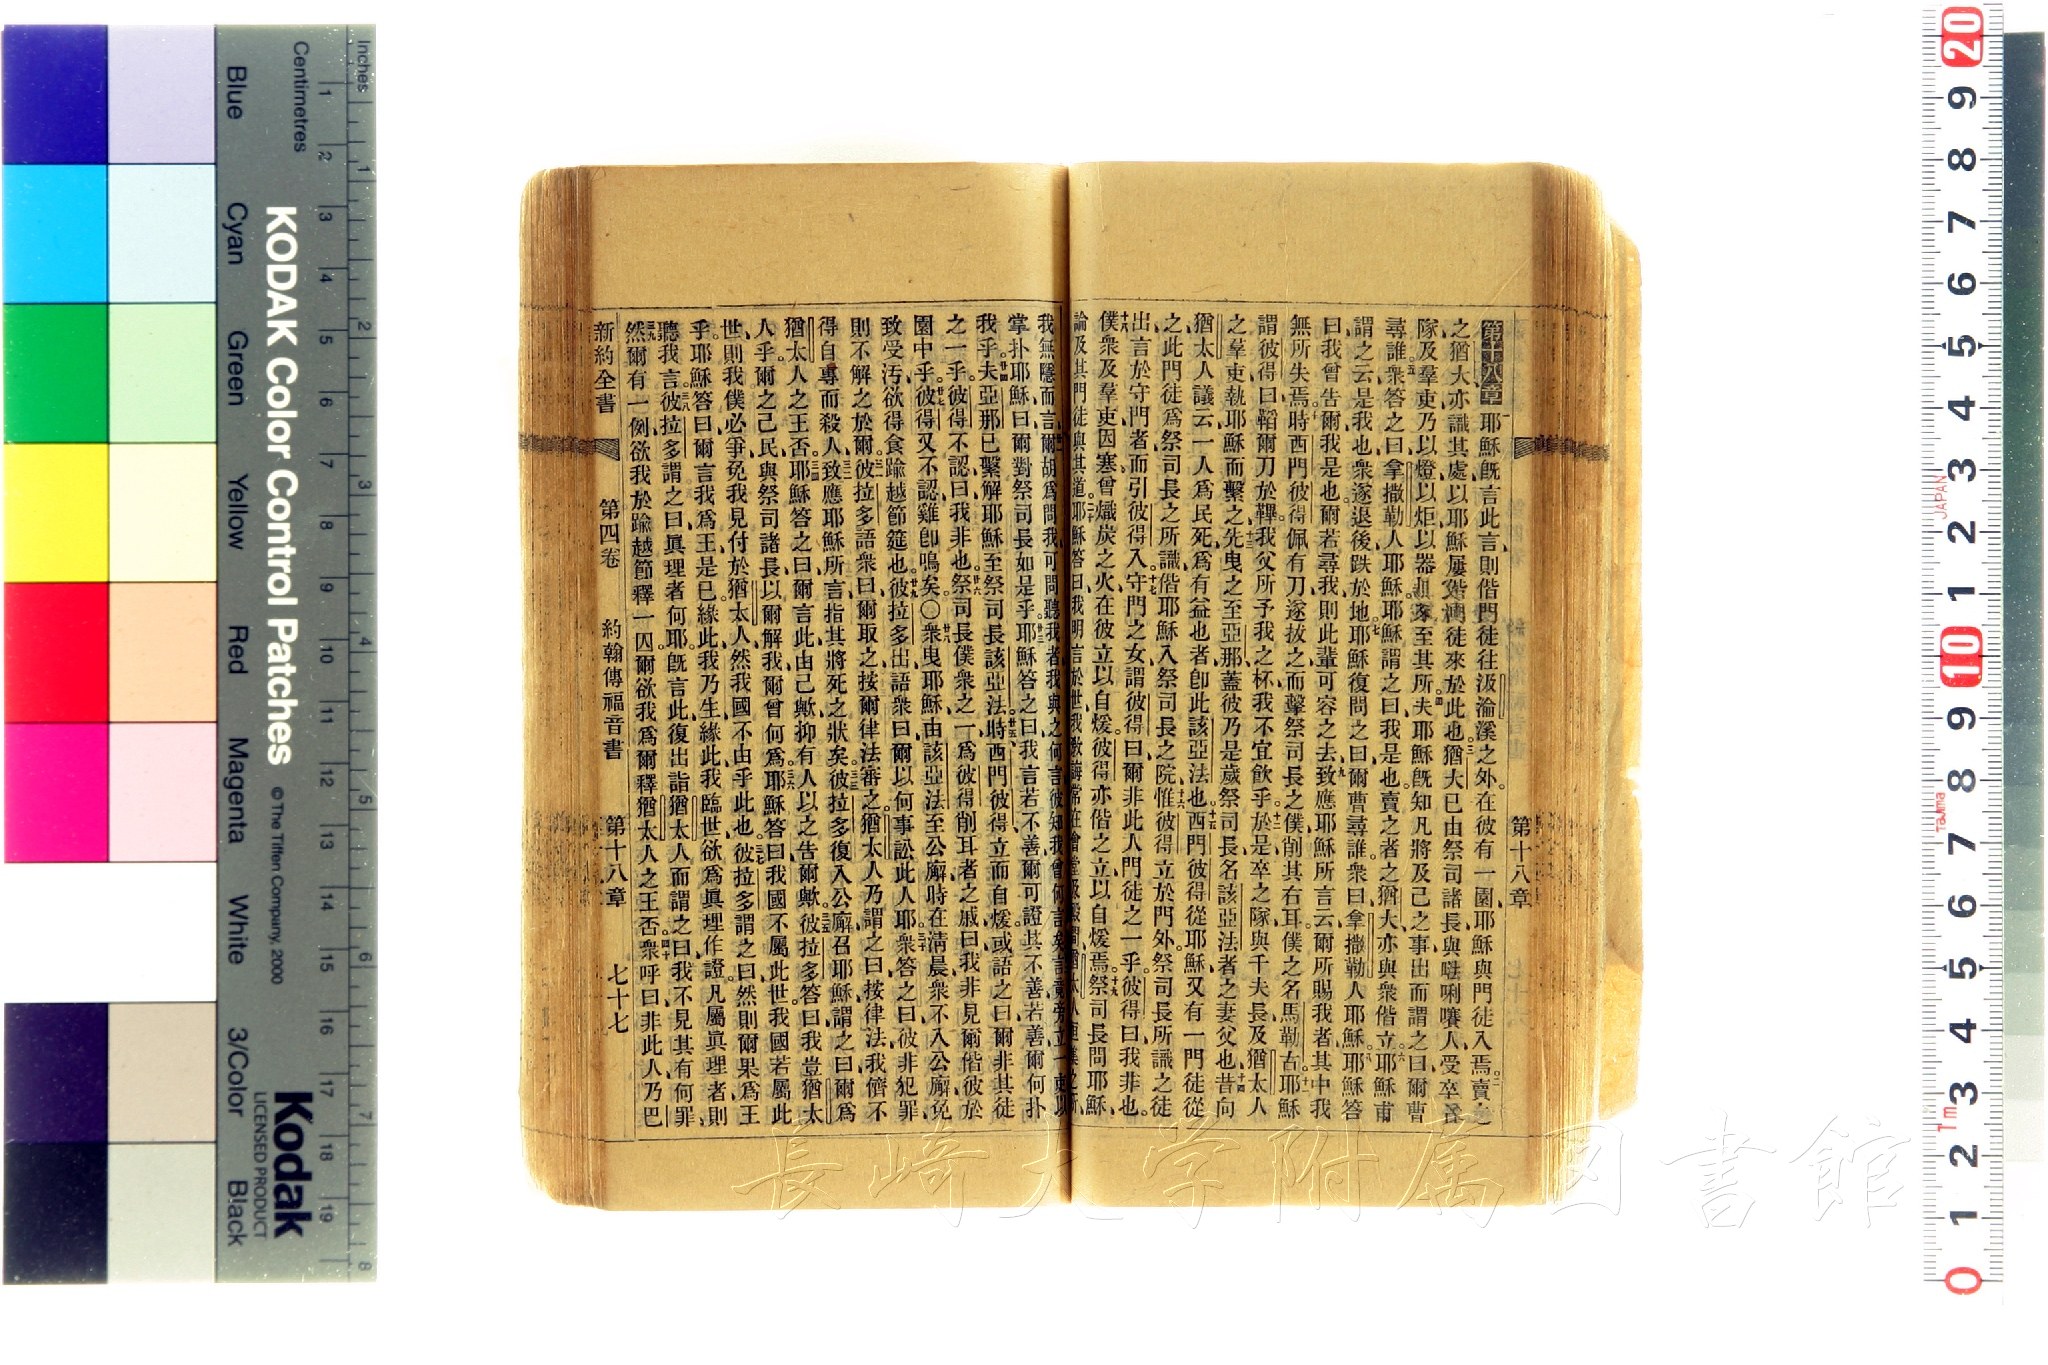 第十八章
第十八章耶穌旣言此言則偕門徒往汲淪溪之外在彼有一園耶穌與門徒入焉賣之
之猶大亦識其處以耶穌屢偕門徒來於此也猶大已由祭司諸長與㕸唎嚷人受卒
隊及羣吏乃以燈以炬以器械來至其所夫耶穌旣知凡將及己之事出而謂之曰爾曹
尋誰衆答之曰拿撒勒人耶穌耶穌謂之曰我是也賣之者之猶大亦與衆偕立耶穌甫
謂之云是我也衆遂退後跌於地耶穌復問之曰爾曹尋誰衆曰拿撒勒人耶穌耶穌答
曰我曾告爾我是也爾若尋我則此輩可容之去致應耶穌所言云爾所賜我者其中我
無所失焉時西門彼得佩有刀遂拔之而擊祭司長之僕削其右耳僕之名馬勒古耶穌
謂彼得曰韜爾刀於鞸我父所予我之杯我不宜飲乎於是卒之隊與千夫長及猶太人
之羣吏執耶穌而繫之先曳之至亞那蓋彼乃是歲祭司長名該亞法者之妻父也昔向
猶太人議云一人爲民死爲有益也者卽此該亞法也西門彼得從耶穌又有一門徒從
之此門徒爲祭司長之所識偕耶穌入祭司長之院惟彼得立於門外祭司長所識之徒
出言於守門者而引彼得入守門之女謂彼得曰爾非此人門徒之一乎彼得曰我非也
僕衆及羣吏因寒曾熾炭之火在彼立以自煖彼得亦偕之立以自煖焉祭司長問耶穌
論及其門徒與其道耶穌答曰我明言於世我敎誨常在會堂及殿間猶太人
我無隱而言爾胡爲問我可問聽我者我與之何言彼知我曾何言矣言竟旁立一吏以
掌扑耶穌曰爾對祭司長如是乎耶穌答之曰我言若不善爾可證其不善若善爾何扑
我乎夫亞那已繫解耶穌至祭司長該亞法時西門彼得立而自煖或語之曰爾非其徒
之一乎彼得不認曰我非也祭司長僕衆之一爲彼得削耳者之戚曰我非見爾偕彼於
園中乎彼得又不認雞卽鳴矣〇衆曳耶穌由該亞法至公廨時在淸晨衆不入公廨免
致受污欲得食踰越節筵也彼拉多出語衆曰爾以何事訟此人耶衆答之曰彼非犯罪
則不解之於爾彼拉多語衆曰爾取之按爾律法審之猶太人乃謂之曰按律法我儕不
得自專而殺人致應耶穌所言指其將死之狀矣彼拉多復入公廨召耶穌謂之曰爾爲
猶太人之王否耶穌答之曰爾言此由己歟抑有人以之告爾歟彼拉多答曰我豈猶太
人乎爾之己民與祭司諸長以爾解我爾曾何爲耶穌答曰我國不屬此世我國若屬此
世則我僕必爭免我見付於猶太人然我國不由乎此也彼拉多謂之曰然則爾果爲王
乎耶穌答曰爾言我爲王是已緣此我乃生緣此我臨世欲爲眞理作證凡屬眞理者則
聽我言彼拉多謂之曰眞理者何耶旣言此復出詣猶太人而謂之曰我不見其有何罪
然爾有一例欲我於踰越節釋一囚爾欲我爲爾釋猶太人之王否衆呼曰非此人乃巴
新約全書 第四卷 約翰傳福音書 第十八章 七十七
長崎大学附属図書館
KODAK Color Control Patches
© The Tiffen Company, 2000
Kodak
LICENSED PRODUCT
Inches 1 2 3 4 5 6 7 8
Centimetres 1 2 3 4 5 6 7 8 9 10 11 12 13 14 15 16 17 18 19
Blue Cyan Green Yellow Red Magenta White 3/Color Black
20 9 8 7 6 5 4 3 2 1 10 9 8 7 6 5 4 3 2 1 0
JAPAN
Tajima
Tm